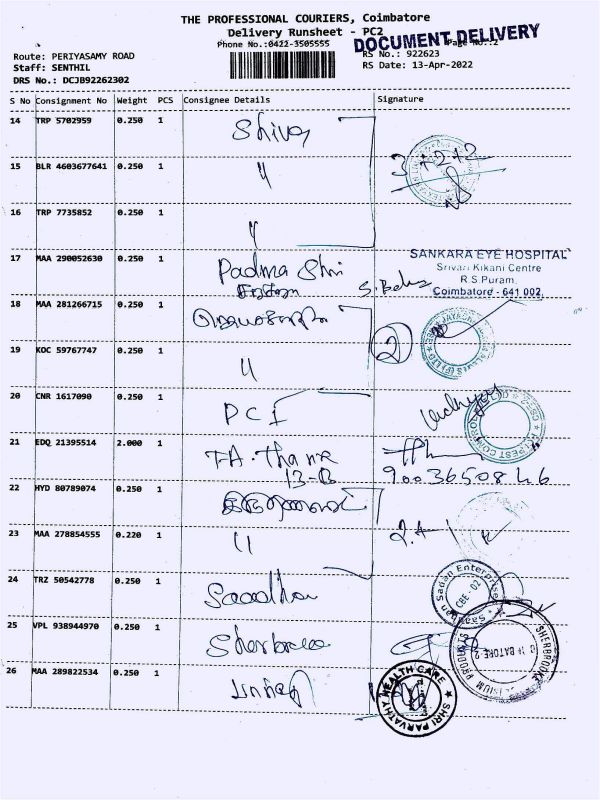 THE PROFESSIONAL COURIERS, Coimbatore
Delivery Runsheet - PC2
Phone No.:0422-3505555
Page No.:2
DOCUMENT DELIVERY
Route: PERIYASAMY ROAD
RS No.: 922623
Staff: SENTHIL
RS Date: 13-Apr-2022
DRS No.: DCJB92262302
S No Consignment No Weight PCS Consignee Details Signature
14 TRP 5702959 0.250 1 Shiva
3+2+2
15 BLR 4603677641 0.250 1 "
16 TRP 7735852 0.250 1 "
17 MAA 290052630 0.250 1 Padma Shri
SANKARA EYE HOSPITAL
Srivari Kikani Centre
R.S.Puram,
Coimbatore - 641 002.
18 MAA 281266715 0.250 1
2
19 KOC 59767747 0.250 1 "
20 CNR 1617090 0.250 1 PCI
21 EDQ 21395514 2.000 1
13-B
22 HYD 80789074 0.250 1
23 MAA 278854555 0.220 1 "
24 TRZ 50542778 0.250 1
Sadan Enterprise
CBE 02
25 VPL 938944970 0.250 1
SHERBROOKE
26 MAA 289822534 0.250 1
SHRI PARVATHY HEALTH CARE